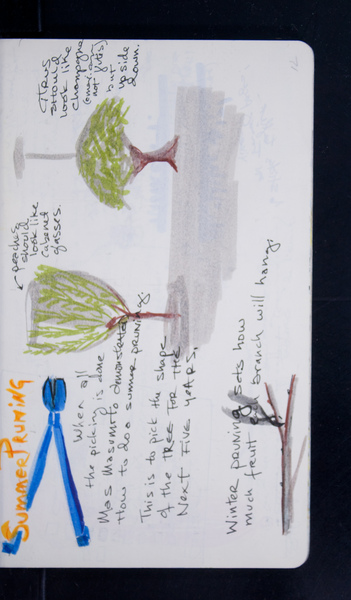 SUMMER PRUNING
When all
the picking is done
Mas Masumoto demonstrated
How to do a summer pruning.
This is to pick the shape
of the TREE FOR THE
NEXT FIVE YEARS.
Winter pruning sets how
much fruit each branch will hang.
← peaches
should
look like
cabernet
glasses.
should
look like
champagne
not flutes)
but
upside
down.